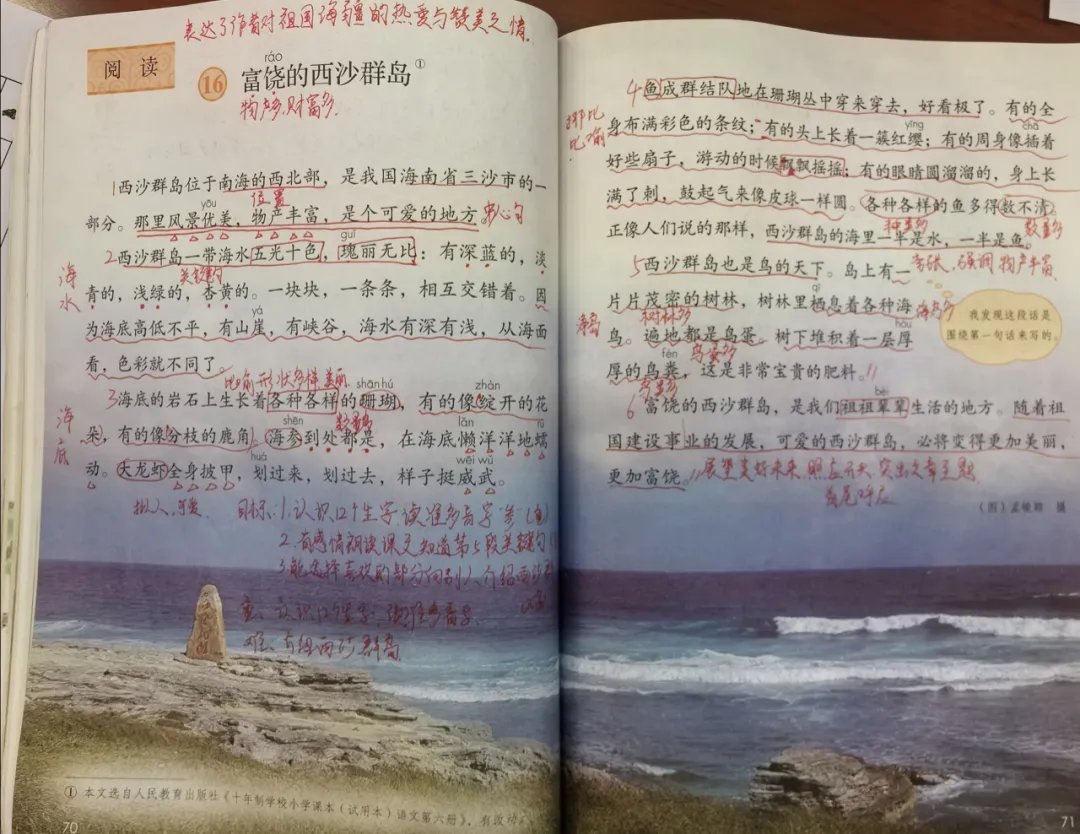 表达了作者对祖国海疆的热爱与赞美之情.
阅 读
ráo
16 富饶的西沙群岛①
物产多.财富多.
1西沙群岛位于南海的西北部，是我国海南省三沙市的一
位置
yōu
部分。那里风景优美，物产丰富，是个可爱的地方。中心句
guī
2西沙群岛一带海水五光十色，瑰丽无比：有深蓝的，淡
海水
关键句
青的，浅绿的，杏黄的。一块块，一条条，相互交错着。因
yá
为海底高低不平，有山崖，有峡谷，海水有深有浅，从海面
看，色彩就不同了。
比喻 形状多样 美丽
shān hú zhàn
3海底的岩石上生长着各种各样的珊瑚，有的像绽开的花
海底
数量多
shēn lǎn rú
朵，有的像分枝的鹿角。海参到处都是，在海底懒洋洋地蠕
huá wēi wǔ
动。大龙虾全身披甲，划过来，划过去，样子挺威武。
拟人.可爱
目标:1.认识12个生字.读准多音字"参"
2.有感情朗读课文,知道第5段关键句
3.能选择喜欢的部分向别人介绍西沙群
重:认识12个生字.读准多音字.
难:介绍西沙群岛
① 本文选自人民教育出版社《十年制学校小学课本（试用本）语文第六册》，有改动。
70
4鱼成群结队地在珊瑚丛中穿来穿去，好看极了。有的全
排比
比喻
yīng chā
身布满彩色的条纹；有的头上长着一簇红缨；有的周身像插着
好些扇子，游动的时候飘飘摇摇；有的眼睛圆溜溜的，身上长
满了刺，鼓起气来像皮球一样圆。各种各样的鱼多得数不清。
种类多 数量多
正像人们说的那样，西沙群岛的海里一半是水，一半是鱼。
夸张、强调 物产丰富
5西沙群岛也是鸟的天下。岛上有一
qī
片片茂密的树林，树林里栖息着各种海
海鸟
树林多
海鸟多
hòu
鸟。遍地都是鸟蛋。树下堆积着一层厚
鸟蛋多
fèn
厚的鸟粪，这是非常宝贵的肥料。
鸟粪多
我发现这段话是
围绕第一句话来写的。
bèi
6富饶的西沙群岛，是我们祖祖辈辈生活的地方。随着祖
国建设事业的发展，可爱的西沙群岛，必将变得更加美丽，
更加富饶。展望美好未来.照应开头 突出文章主题
首尾呼应
（图）孟敏鹤 摄
71